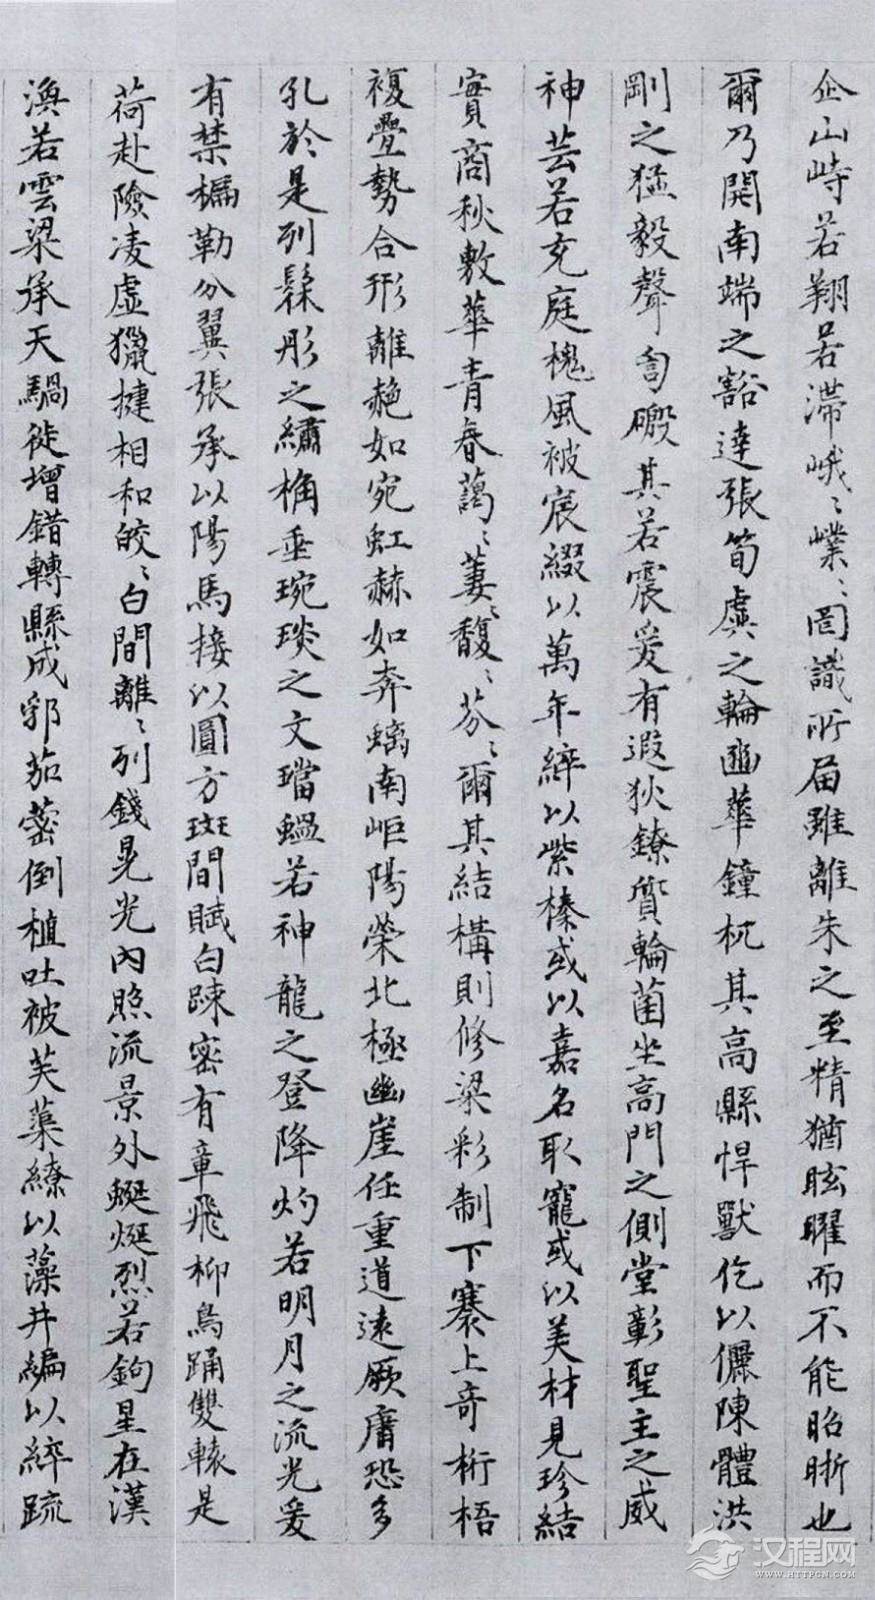 企山峙若翔若滯峨〻嶪〻罔識所届雖離朱之至精猶眩曜而不能昭晣也
爾乃開南端之豁達張筍虡之輪豳華鐘杌其高縣悍獸仡以儷陳體洪
剛之猛毅聲訇磤其若震爰有遐狄鐐質輪菌坐高門之側堂彰聖主之威
神芸若充庭槐風被宸綴以萬年綷以紫榛或以嘉名取寵或以美材見珍結
實商秋敷華青春藹〻萋〻馥〻芬〻爾其結構則修梁彩制下褰上奇桁梧
複疊勢合形離赩如宛虹赫如奔螭南岠陽榮北極幽崖任重道遠厥庸恐多
孔於是列髹彤之繡桷垂琬琰之文璫蝹若神龍之登降灼若明月之流光爰
有禁楄勒分翼張承以陽馬接以圓方斑間賦白踈密有章飛枊鳥踊雙轅是
荷赴險凌虛獵捷相和皎〻白間離〻列錢晃光內照流景外蜒烻烈若鉤星在漢
渙若雲梁承天騧徙增錯轉縣成郛茄蔤倒植吐被芙蕖繚以藻井編以綷疏
汉程网
WWW.HTTPCN.COM